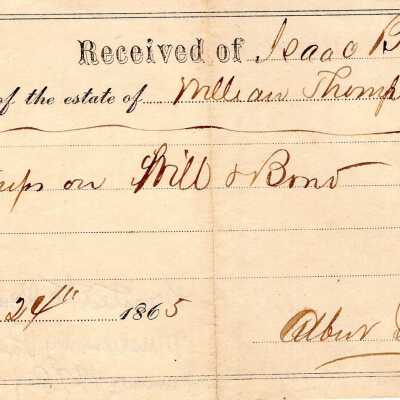 Received of Isaac B
of the estate of William Thomp
on Will & Bond
24th 1865
Albert